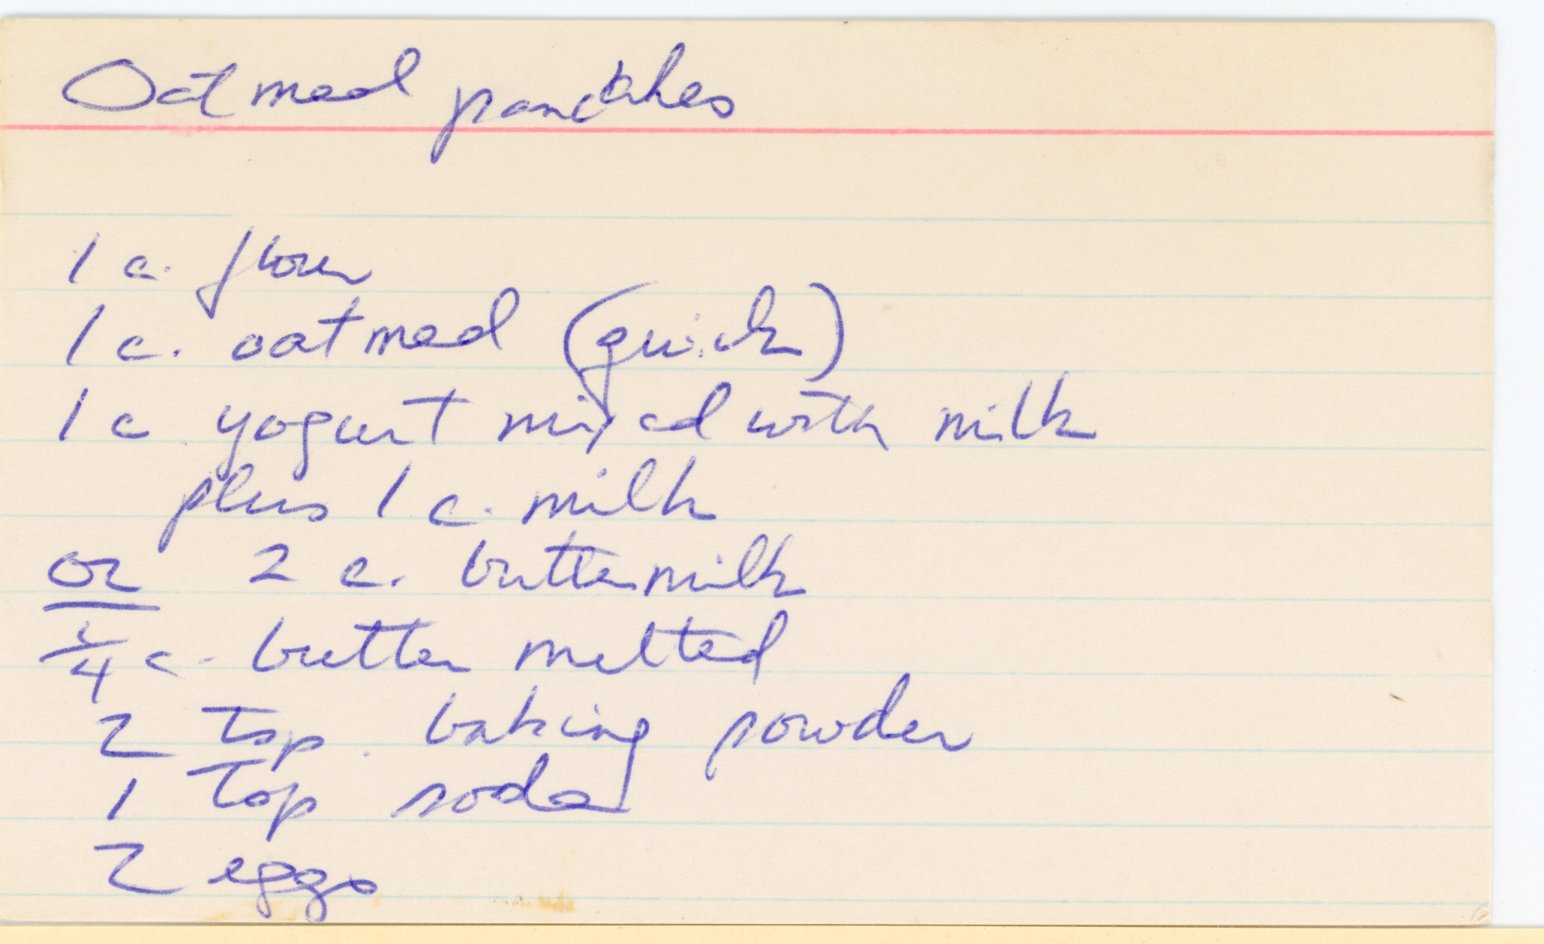 Oatmeal pancakes
1 c. flour
1 c. oatmeal (quick)
1 c yogurt mixed with milk
plus 1 c. milk
or 2 c. buttermilk
1/4 c. butter melted
2 tsp. baking powder
1 tsp soda
2 eggs